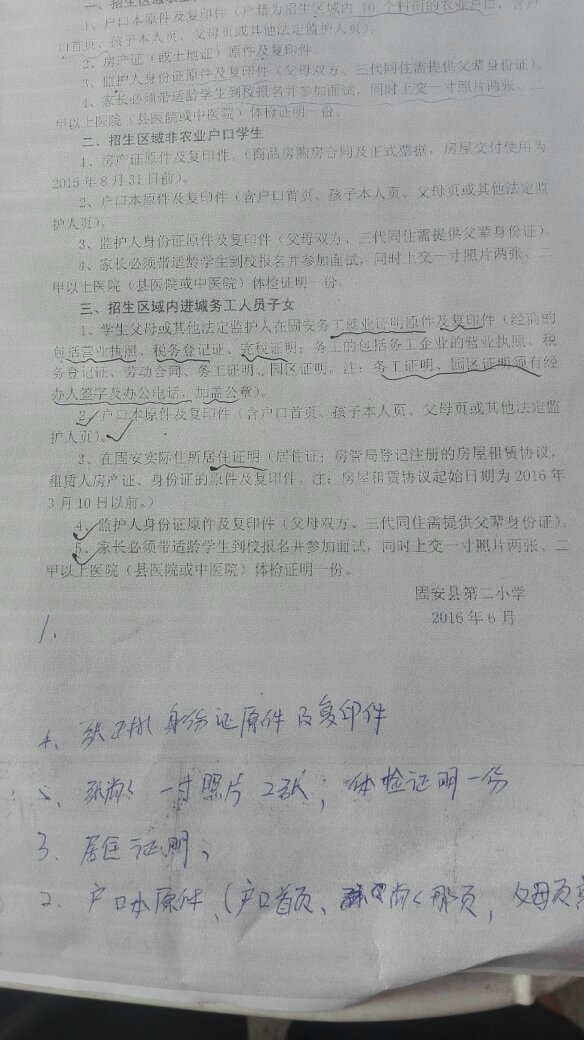 一、招生区域
1、户口本原件及复印件（户籍为招生区域内 10 个村街的农业户口、含户
口首页、孩子本人页、父母页或其他法定监护人页）。
2、房产证（或土地证）原件及复印件。
3、监护人身份证原件及复印件（父母双方、三代同住需提供父辈身份证）。
4、家长必须带适龄学生到校报名并参加面试，同时上交一寸照片两张、二
甲以上医院（县医院或中医院）体检证明一份。
二、招生区域非农业户口学生
1、房产证原件及复印件。（商品房购房合同及正式票据，房屋交付使用为
2015年8月31日前）。
2、户口本原件及复印件（含户口首页、孩子本人页、父母页或其他法定监
护人页）。
3、监护人身份证原件及复印件（父母双方、三代同住需提供父辈身份证）。
4、家长必须带适龄学生到校报名并参加面试，同时上交一寸照片两张、二
甲以上医院（县医院或中医院）体检证明一份。
三、招生区域内进城务工人员子女
1、学生父母或其他法定监护人在固安务工就业证明原件及复印件（经商的
包括营业执照、税务登记证、完税证明；务工的包括务工企业的营业执照、税
务登记证、劳动合同、务工证明、园区证明。注：务工证明、园区证明须有经
办人签字及办公电话，加盖公章）。
2、户口本原件及复印件（含户口首页、孩子本人页、父母页或其他法定监
护人页）。
3、在固安实际住所居住证明（居住证；房管局登记注册的房屋租赁协议，
租赁人房产证、身份证的原件及复印件。注：房屋租赁协议起始日期为2016年
3月10日以前。）
4、监护人身份证原件及复印件（父母双方、三代同住需提供父辈身份证）。
5、家长必须带适龄学生到校报名并参加面试，同时上交一寸照片两张、二
甲以上医院（县医院或中医院）体检证明一份。
固安县第二小学
2016年6月
1.
4、张 身份证原件及复印件
5、张尚 一寸照片2张，体检证明一份
3、居住证明，
2、户口本原件，（户口首页、尚 那页，父母页